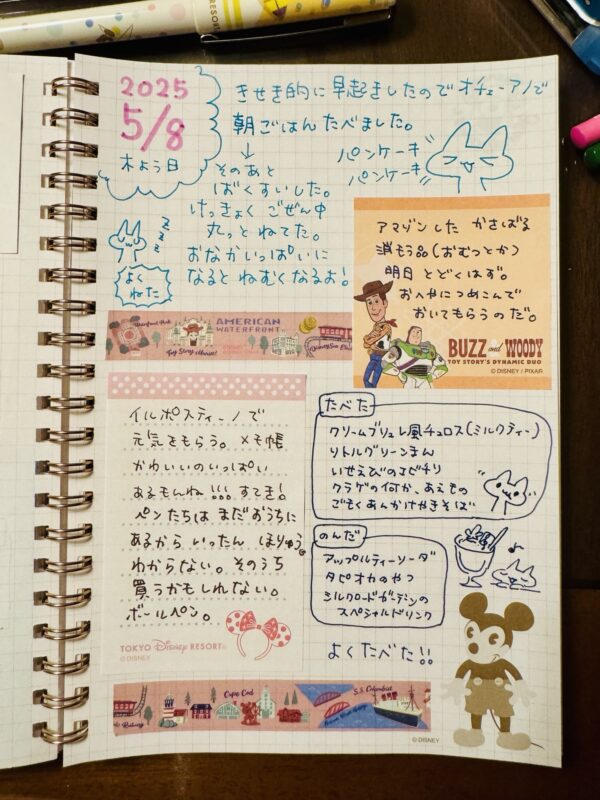 2025
5/8
木よう日
きせき的に早起きしたのでオチェーアノで
朝ごはんたべました。
↓
そのあと
ばくすいした。
けっきょくごぜん中
丸っとねてた。
おなかいっぱいに
なるとねむくなるよ!
パンケーキ
パンケーキ
z z z
よく
ねた
アマゾンした かさばる
消もう品(おむつとか)
明日とどくはず。
おへやにつめこんで
おいてもらうのだ。
BUZZ and WOODY
TOY STORY'S DYNAMIC DUO
© DISNEY / PIXAR
Waterfront Park
AMERICAN
WATERFRONT
Toy Story Mania!
イルポスティーノで
元気をもらう。メモ帳
かわいいのいっぱい
あるもんね!!! すてき!
ペンたちはまだおうちに
あるからいったんほりゅう。
わからない。そのうち
買うかもしれない。
ボールペン。
TOKYO Disney RESORT®
© DISNEY
たべた
クリームブリュレ風チュロス(ミルクティー)
リトルグリーンまん
いせえびのよだチリ
クラゲの何か、あえもの
ごもくあんかけやきそば
のんだ
アップルティーソーダ
タピオカのやつ
シルクロードガーデンの
スペシャルドリンク
よくたべた!!
Cape Cod
S.S. Columbia
© DISNEY